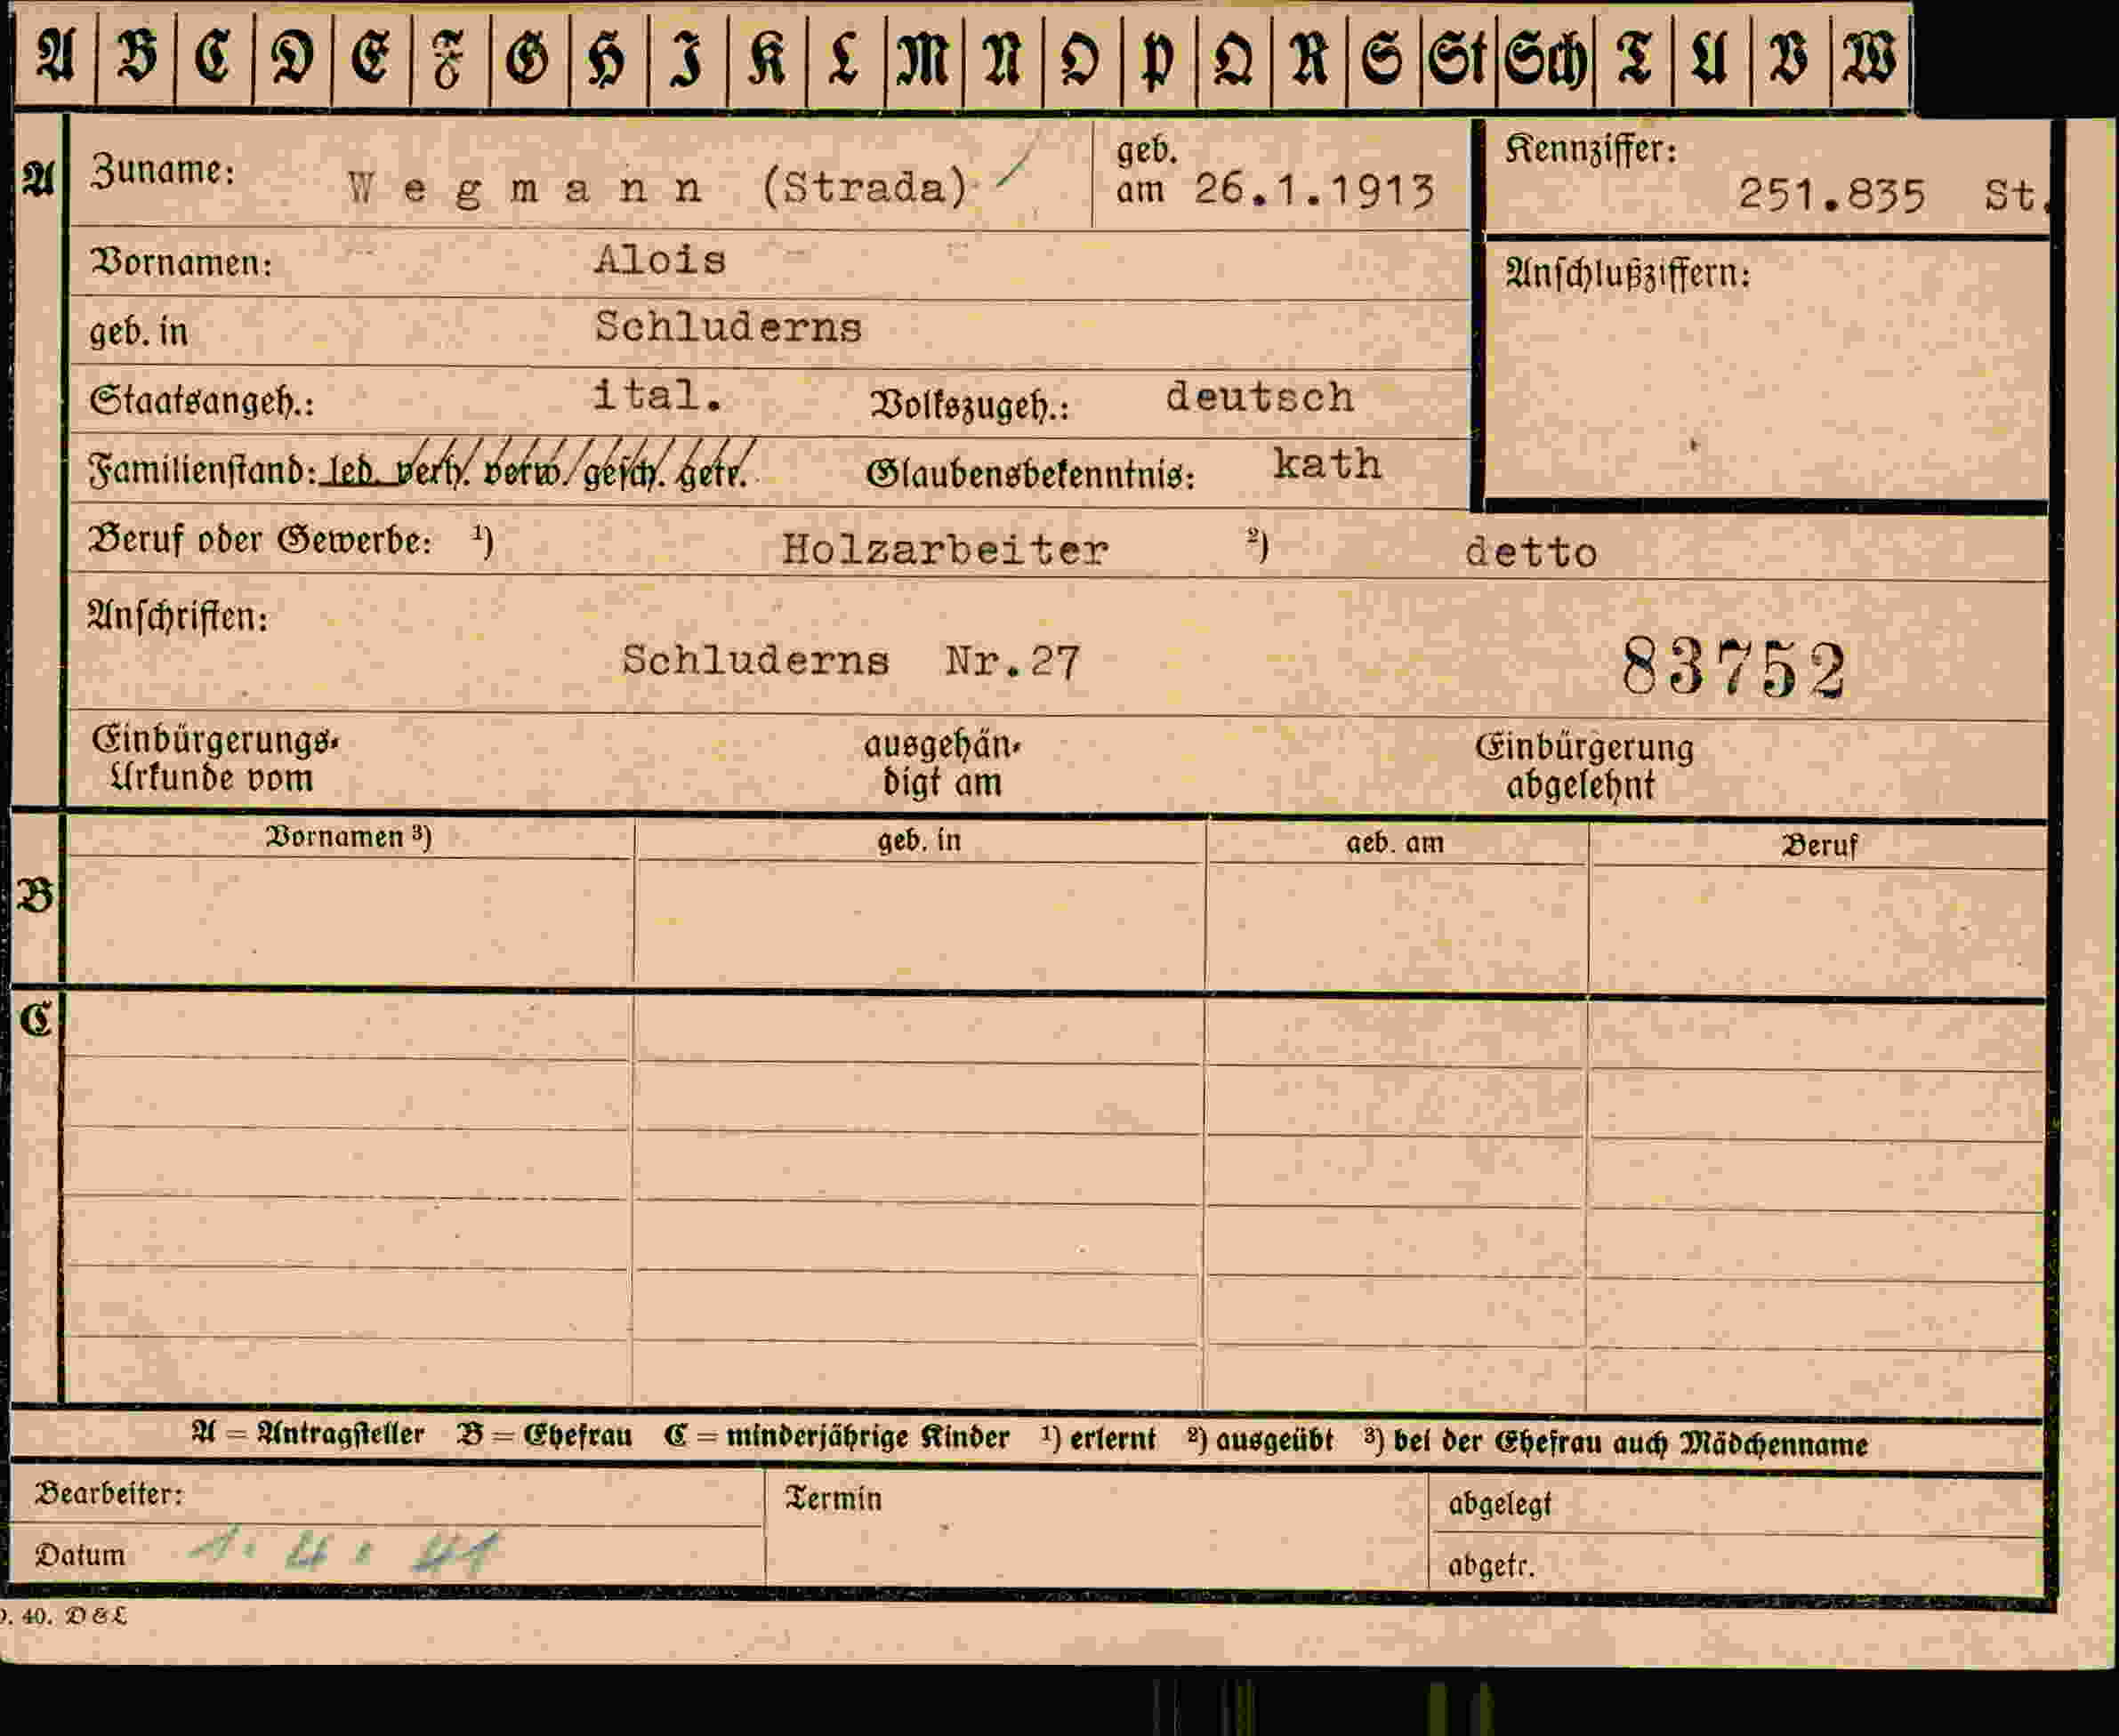 A B C D E F G H I K L M N O P Q R S St Sch T U V W
A Zuname: Wegmann (Strada) geb. am 26.1.1913 Kennziffer: 251.835 St.
Vornamen: Alois
Anschlußziffern:
geb. in Schluderns
Staatsangeh.: ital. Volkszugeh.: deutsch
Familienstand: led. verh. verw. gesch. getr. Glaubensbekenntnis: kath
Beruf oder Gewerbe: ¹) Holzarbeiter ²) detto
Anschriften:
Schluderns Nr.27 83752
Einbürgerungs- ausgehän- Einbürgerung
Urkunde vom digt am abgelehnt
Vornamen ³) geb. in geb. am Beruf
B
C
A = Antragsteller B = Ehefrau C = minderjährige Kinder ¹) erlernt ²) ausgeübt ³) bei der Ehefrau auch Mädchenname
Bearbeiter: Termin abgelegt
Datum 1. 4. 41 abgetr.
40. D & L